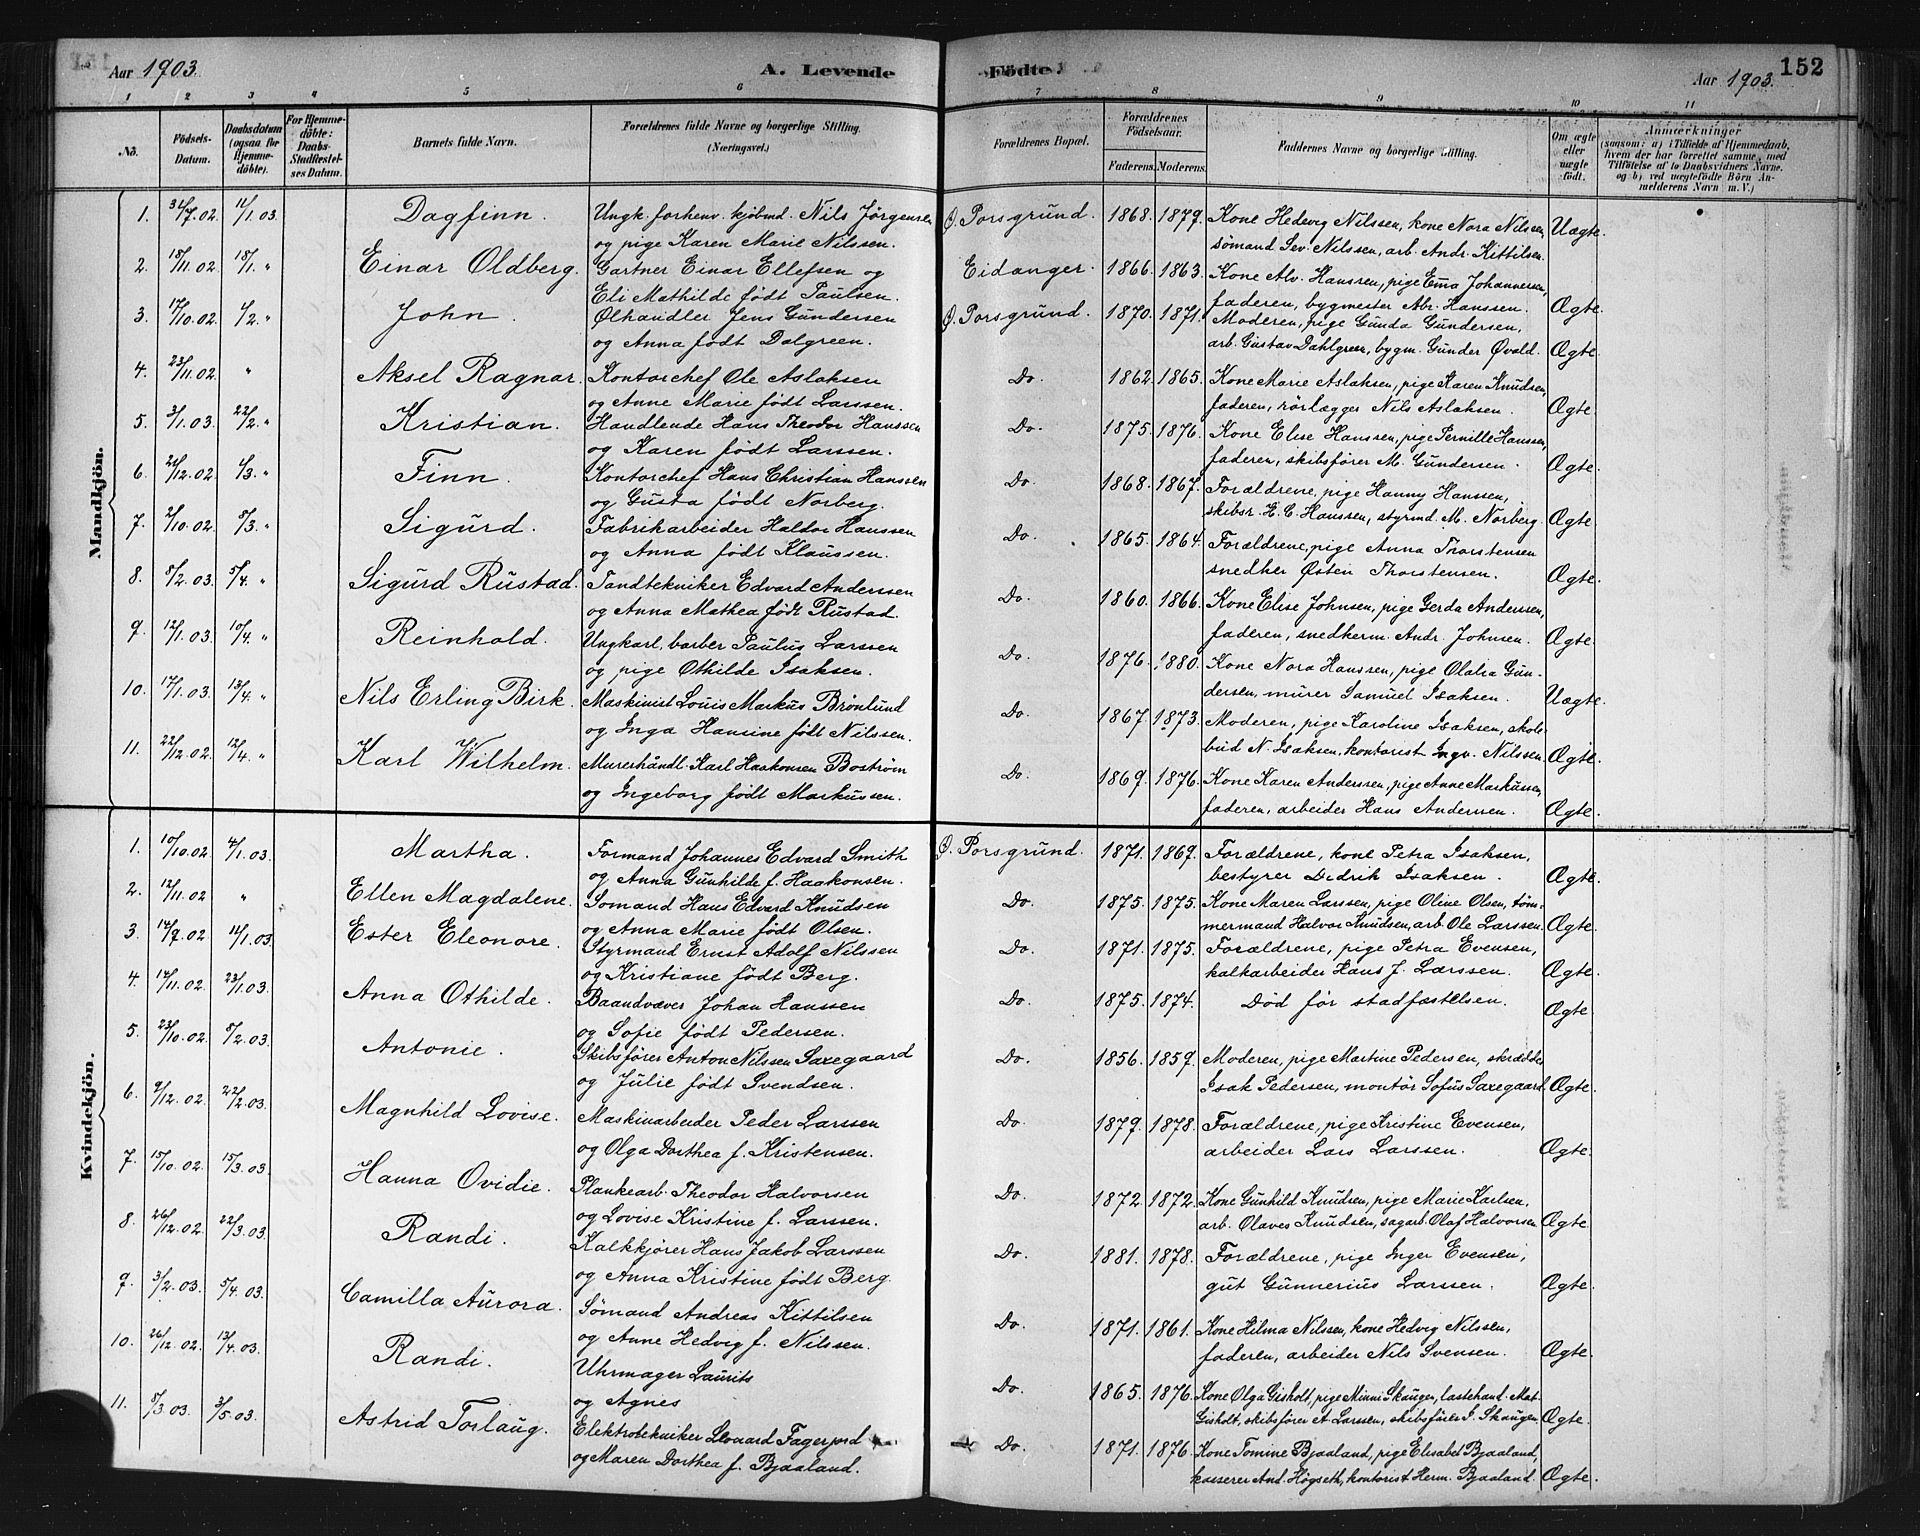 Aar 1903. A. Levende Födte. Aar 1903. 152
1 2 3 4 5 6 7 8 9 10 11
No. Födsels-Datum. Daabsdatum (ogsaa for Hjemme-döbte). For Hjemme-döbte: Daabs-Stadfæstel-ses Datum. Barnets fulde Navn. Forældrenes fulde Navne og borgerlige Stilling. (Næringsvei.) Forældrenes Bopæl. Forældrenes Födselsaar. Faderens. Moderens. Faddernes Navne og borgerlige Stilling. Om ægte eller uægte födt. Anmærkninger (saasom: a) i Tilfælde af Hjemmedaab, hvem der har forrettet samme, med Tilföielse af to Daabsvidners Navne, og b) ved uægtefödte Börn An-melderens Navn m. V.)
Mandkjön.
1. 31/7.02. 11/1.03. Dagfinn. Ungk. forhenv. kjøbmd. Nils Jørgensen Ø. Porsgrund. 1868. 1879. Kone Hedevig Nilssen, kone Nora Nilssen, Uægte.
og pige Karen Marie Nilssen. sømand Sev. Nilssen, arb. Andr. Kittilsen.
2. 18/11.02. 18/1. " Einar Oldberg. Gartner Einar Ellefsen og Eidanger. 1866. 1863. Kone Alv. Hanssen, pige Ema Johannessen,
Eli Mathilde født Paulsen. faderen, bygmester Abr. Hanssen. Ægte.
3. 17/10.02. 1/2. " John. Ølhandler Jens Gundersen Ø. Porsgrund. 1870. 1871. Moderen, pige Gunda Gundersen,
og Anna født Dalgreen. arb. Gustav Dahlgreen, bygm. Gunder Øvald. Ægte.
4. 23/11.02. " Aksel Ragnar. Kontorchef Ole Aslaksen Do. 1862. 1865. Kone Marie Aslaksen, pige Karen Knudsen,
og Anne Marie født Larssen. faderen, rörlægger Nils Aslaksen. Ægte.
5. 3/1.03. 22/2. " Kristian. Handlende Hans Theodor Hanssen Do. 1875. 1876. Kone Elise Hanssen, pige Pernille Hanssen,
og Karen født Larssen. faderen, skibsfører M. Gundersen. Ægte.
6. 21/12.02. 1/3. " Finn. Kontorchef Hans Christian Hanssen Do. 1868. 1867. Forældrene, pige Hanny Hanssen,
og Gusta født Norberg. skibsr. H. C. Hanssen, styrmd. M. Norberg. Ægte.
7. 2/10.02. 8/3. " Sigurd. Fabrikarbeider Haldor Hanssen Do. 1865. 1864. Forældrene, pige Anna Thorstensen
og Anna født Klaussen. snedker Østen Thorstensen. Ægte.
8. 8/2.03. 5/4. " Sigurd Rustad. Tandtekniker Edvard Anderssen Do. 1860. 1866. Kone Elise Johnsen, pige Gerda Anderssen,
og Anna Mathea født Rustad. faderen, snedkerm. Andr. Johnsen. Ægte.
9. 12/1.03. 10/4. " Reinhold. Ungkarl, barber Paulus Larssen Do. 1876. 1880. Kone Nora Hanssen, pige Olalia Gun-
og pige Othilde Isaksen. dersen, murer Samuel Isaksen. Uægte.
10. 17/1.03. 13/4. " Nils Erling Birk. Maskinist Louis Markus Brönlund Do. 1867. 1873. Moderen, pige Karoline Isaksen, skole-
og Inga Hansine født Nilssen. bud N. Isaksen, kontorist Ingv. Nilssen Ægte.
11. 22/12.02. 12/4. " Karl Wilhelm. Murerhåndl. Karl Haakonsen Boström Do. 1869. 1876. Kone Karen Anderssen, pige Anne Markussen,
og Ingeborg født Markussen. faderen, arbeider Hans Anderssen. Ægte.
Kvindekjön.
1. 10/10.02. 4/1.03. Martha. Formand Johannes Edvard Smith Ø. Porsgrund. 1871. 1869. Forældrene, kone Petra Isaksen,
og Anna Gunhilde f. Haakonsen. bestyrer Didrik Isaksen. Ægte.
2. 12/11.02 " Ellen Magdalene. Sømand Hans Edvard Knudsen Do. 1875. 1875. Kone Maren Larssen, pige Oline Olsen, tøm-
og Anna Marie født Olsen. mermand Halvor Knudsen, arb. Ole Larssen. Ægte.
3. 14/9.02 11/1.03. Ester Eleonore. Styrmand Ernst Adolf Nilssen Do. 1871. 1875. Forældrene, pige Petra Evensen,
og Kristiane født Berg. kalkarbeider Hans J. Larssen. Ægte.
4. 14/11.02. 23/1.03. Anna Othilde. Baandvæver Johan Hanssen Do. 1875. 1874. Död før stadfæstelsen. Ægte.
og Sofie født Pedersen.
5. 23/10.02. 8/2.03. Antonie. Skibsfører Anton Nilssen Saxegaard Do. 1856. 1859. Moderen, pige Martine Pedersen,
og Julie født Svendsen. Isak Pedersen, montör Sofus Saxegaard. Ægte.
6. 9/12.02. 22/2.03. Magnhild Lovise. Maskinarbeider Peder Larssen Do. 1879. 1878. Forældrene, pige Kristine Evensen,
og Olga Dorthea f. Kristensen. arbeider Lars Larssen. Ægte.
7. 15/10.02. 15/3.03. Hanna Ovidie. Plankearb. Theodor Halvorsen Do. 1872. 1872. Kone Gunhild Knudsen, pige Marie Karlsen,
og Lovise Kristine f. Larssen. arb. Olaves Knudsen, sagarb. Olaf Halvorsen Ægte.
8. 26/12.02. 22/3.03. Randi. Kalkkjörer Hans Jakob Larssen Do. 1881. 1878. Forældrene, pige Inger Evensen,
og Anna Kristine født Berg. gut Gunnerius Larssen. Ægte.
9. 3/2.03. 5/4.03. Camilla Aurora. Sömand Andreas Kittilsen Do. 1871. 1861. Kone Hilma Nilssen, kone Hedvig Nilssen,
og Anne Hedvig f. Nilssen. faderen, arbeider Nils Svensen. Ægte.
10. 26/12.02. 13/4.03. Randi. Uhrmager Laurits Do. 1865. 1876. Kone Olga Gisholt, pige Minni Skaugen, lastehand. Mat.
og Agnes Gisholt, skibsfører A. Larssen, skibsfører S. Skaugen. Ægte.
11. 8/3.03. 3/5.03. Astrid Torlaug. Elektrotekniker Leonard Fagerjord Do. 1871. 1876. Kone Tomine Bjaaland, pige Elisabet Bjaaland,
og Maren Dorthea f. Bjaaland. kasserer And. Högseth, kontorist Herm. Bjaaland. Ægte.